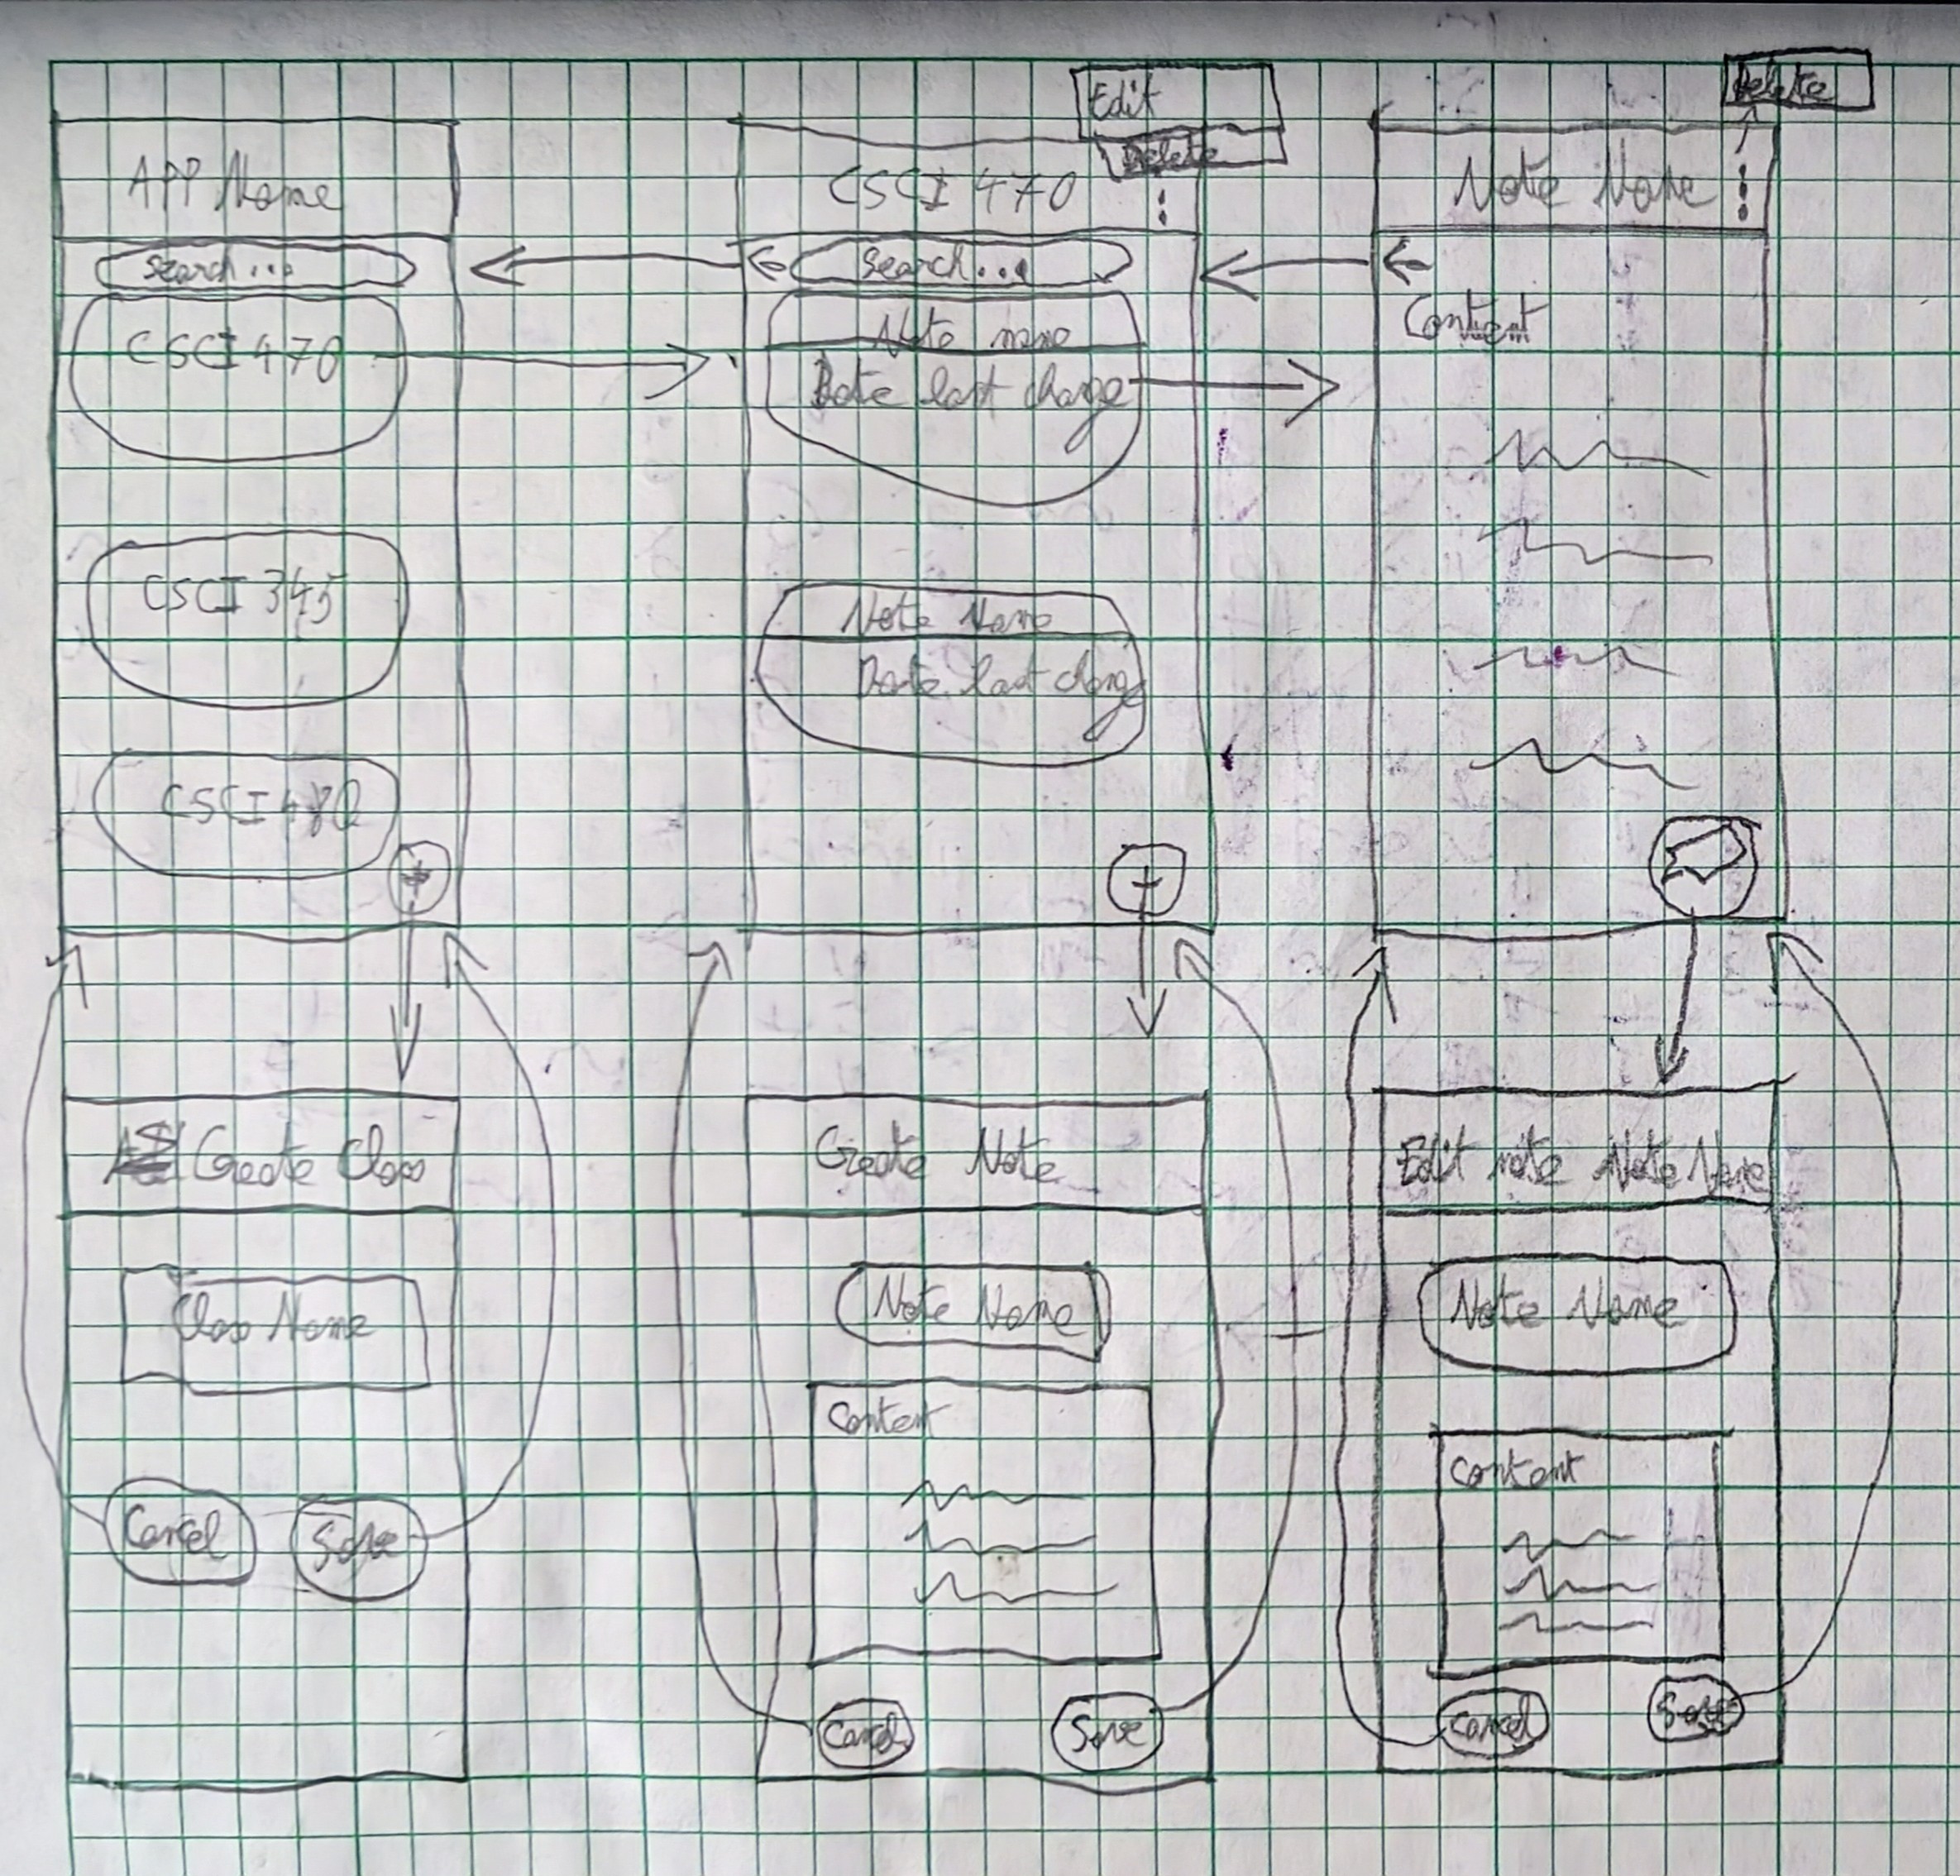 APP Name
search...
CSCI 470
CSCI 345
CSCI 480
+
Edit
Delete
CSCI 470
search...
Note name
Date last change
Note Name
Date last change
+
Delete
Note Name
Content
Create Class
Class Name
Cancel
Save
Create Note
Note Name
Content
Cancel
Save
Edit note Note Name
Note Name
Content
Cancel
Save